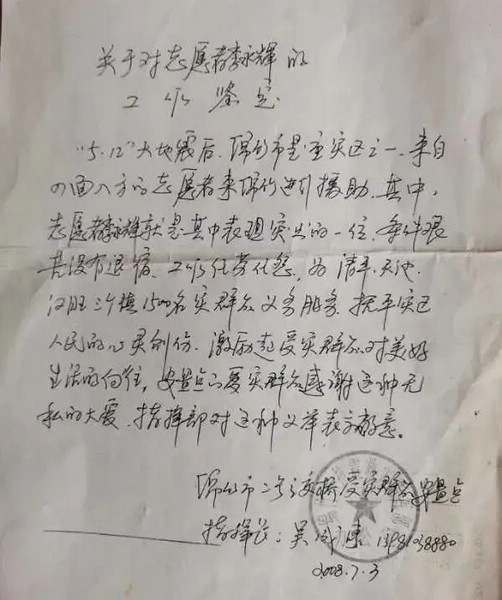 关于对志愿者李永辉的
工作鉴定
"5.12"大地震后，绵竹市是重灾区之一，来自
四面八方的志愿者来绵竹进行援助。其中，
志愿者李永辉就是其中表现突出的一位，条件艰
苦没有退缩，工作任劳任怨，为清平、天池、
汉旺三个镇1500名灾群众义务服务，抚平灾区
人民的心灵创伤，激励起受灾群众对美好
生活的向往，安置点的受灾群众感谢这种无
私的大爱，指挥部对这种义举表示敬意。
绵竹市二号立交桥受灾群众安置点
指挥长：吴 康 13981038880
2008.7.3